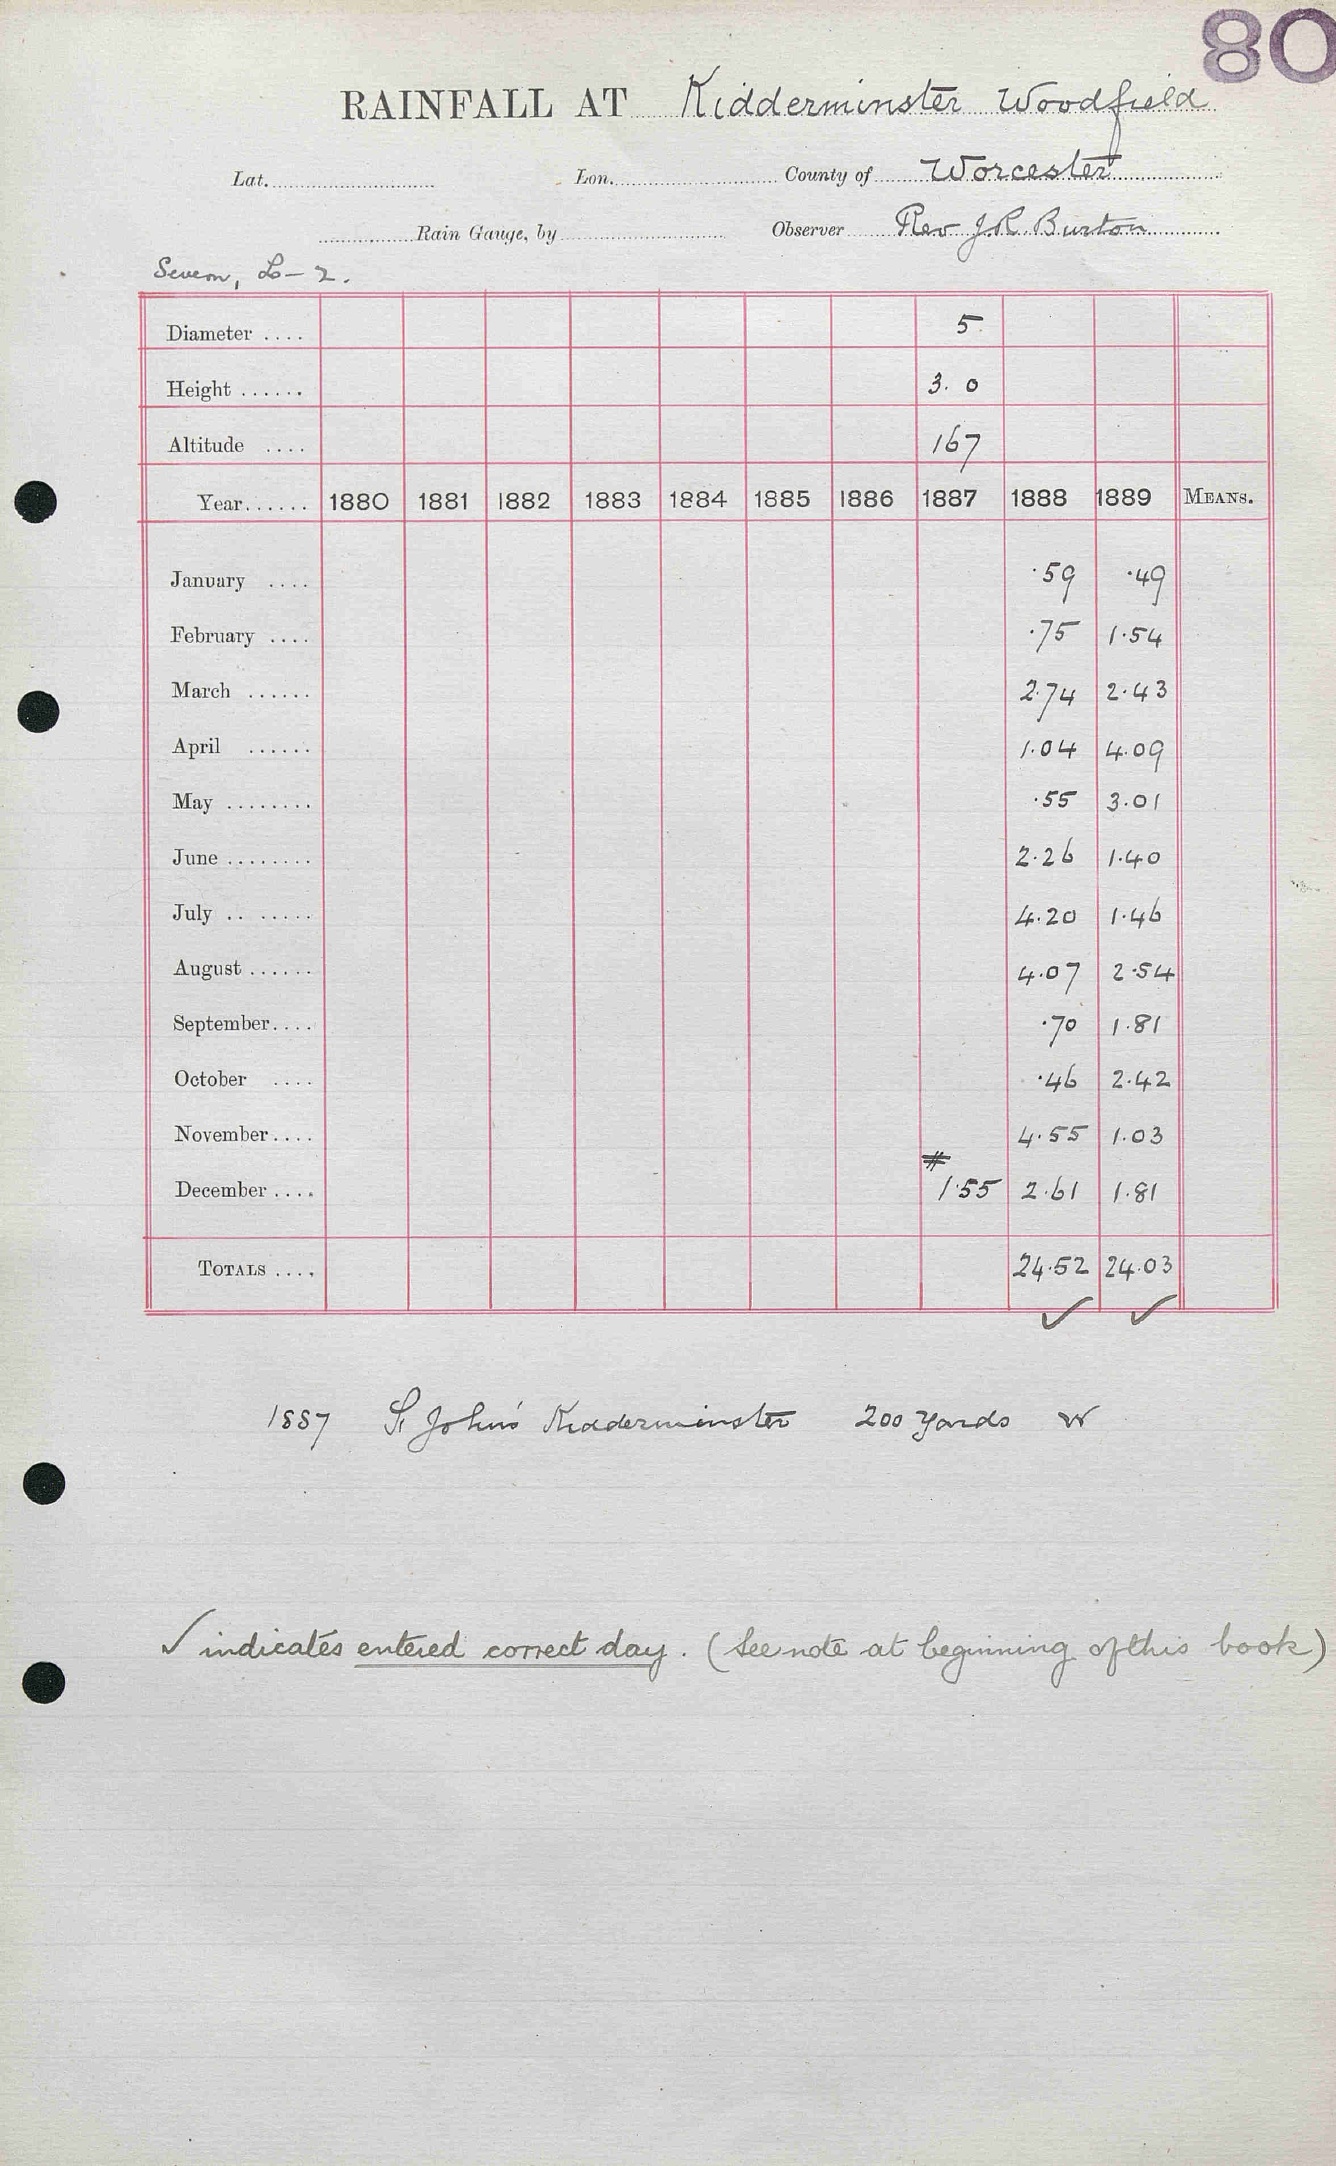 80
RAINFALL AT Kidderminster Woodfield
Lat. Lon. County of Worcester
Rain Gauge, by Observer Rev J R Burton
Severn, L-2.
Diameter .... 5
Height ...... 3. 0
Altitude .... 167
Year...... 1880 1881 1882 1883 1884 1885 1886 1887 1888 1889 MEANS.
January .... ·59 ·49
February .... ·75 1·54
March ...... 2·74 2·43
April ...... 1·04 4·09
May ........ ·55 3·01
June ........ 2·26 1·40
July .. ..... 4·20 1·46
August ...... 4·07 2·54
September.... ·70 1·81
October .... ·46 2·42
November.... 4·55 1·03
December .... # 1·55 2·61 1·81
TOTALS .... 24·52 24·03
✓ ✓
1887 St John's Kidderminster 200 yards W
✓ indicates entered correct day. (See note at beginning of this book)